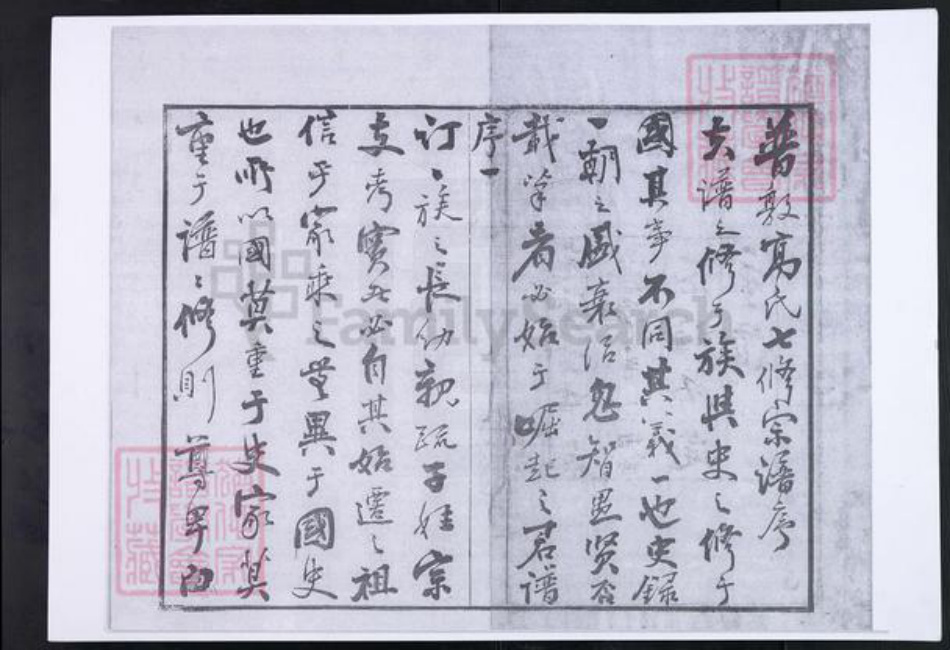 普敦高氏七修宗譜序
夫譜之修于族與史之修于
國其事不同其義一也史錄
一朝之盛衰治忽智愚贤否
載筆者必始于崛起之君譜
序一
訂一族之長幼親疏子姓宗
支考實此必自其始遷之祖
信乎家乘之無異于國史
也所以國莫重于史家莫
重于譜譜修則尊卑
FamilySearch